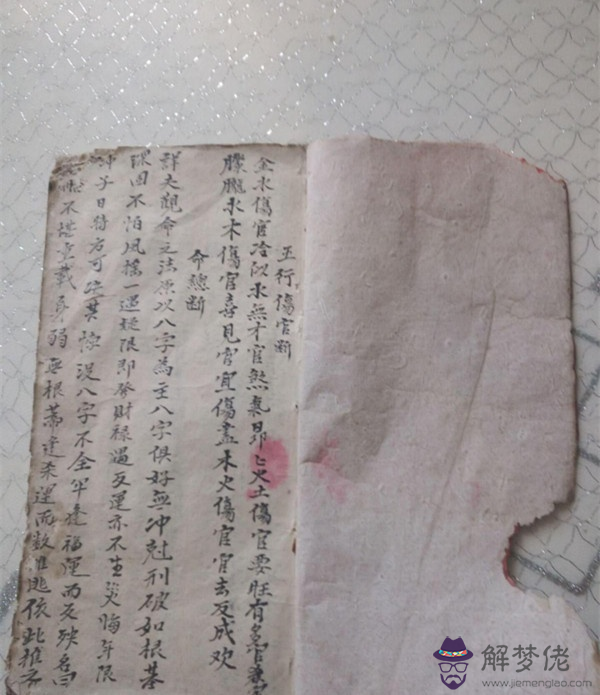 五行傷官斷
金水傷官冷似水無才官煞氣昴火土傷官要旺有
朦朧水木傷官喜見官宜傷盡木火傷官官去反成欢
命總斷
詳夫觀命之法原以八字為主八字俱好無冲尅刑破如根基
深固不怕風搖一遇限即發財祿遇反運亦不生災晦年限
子日時方可八字不全年逢福運而反殃
不堪重載身弱無根蒂逢柔運而數難逃依此推
解梦佬
www.jiemenglao.com